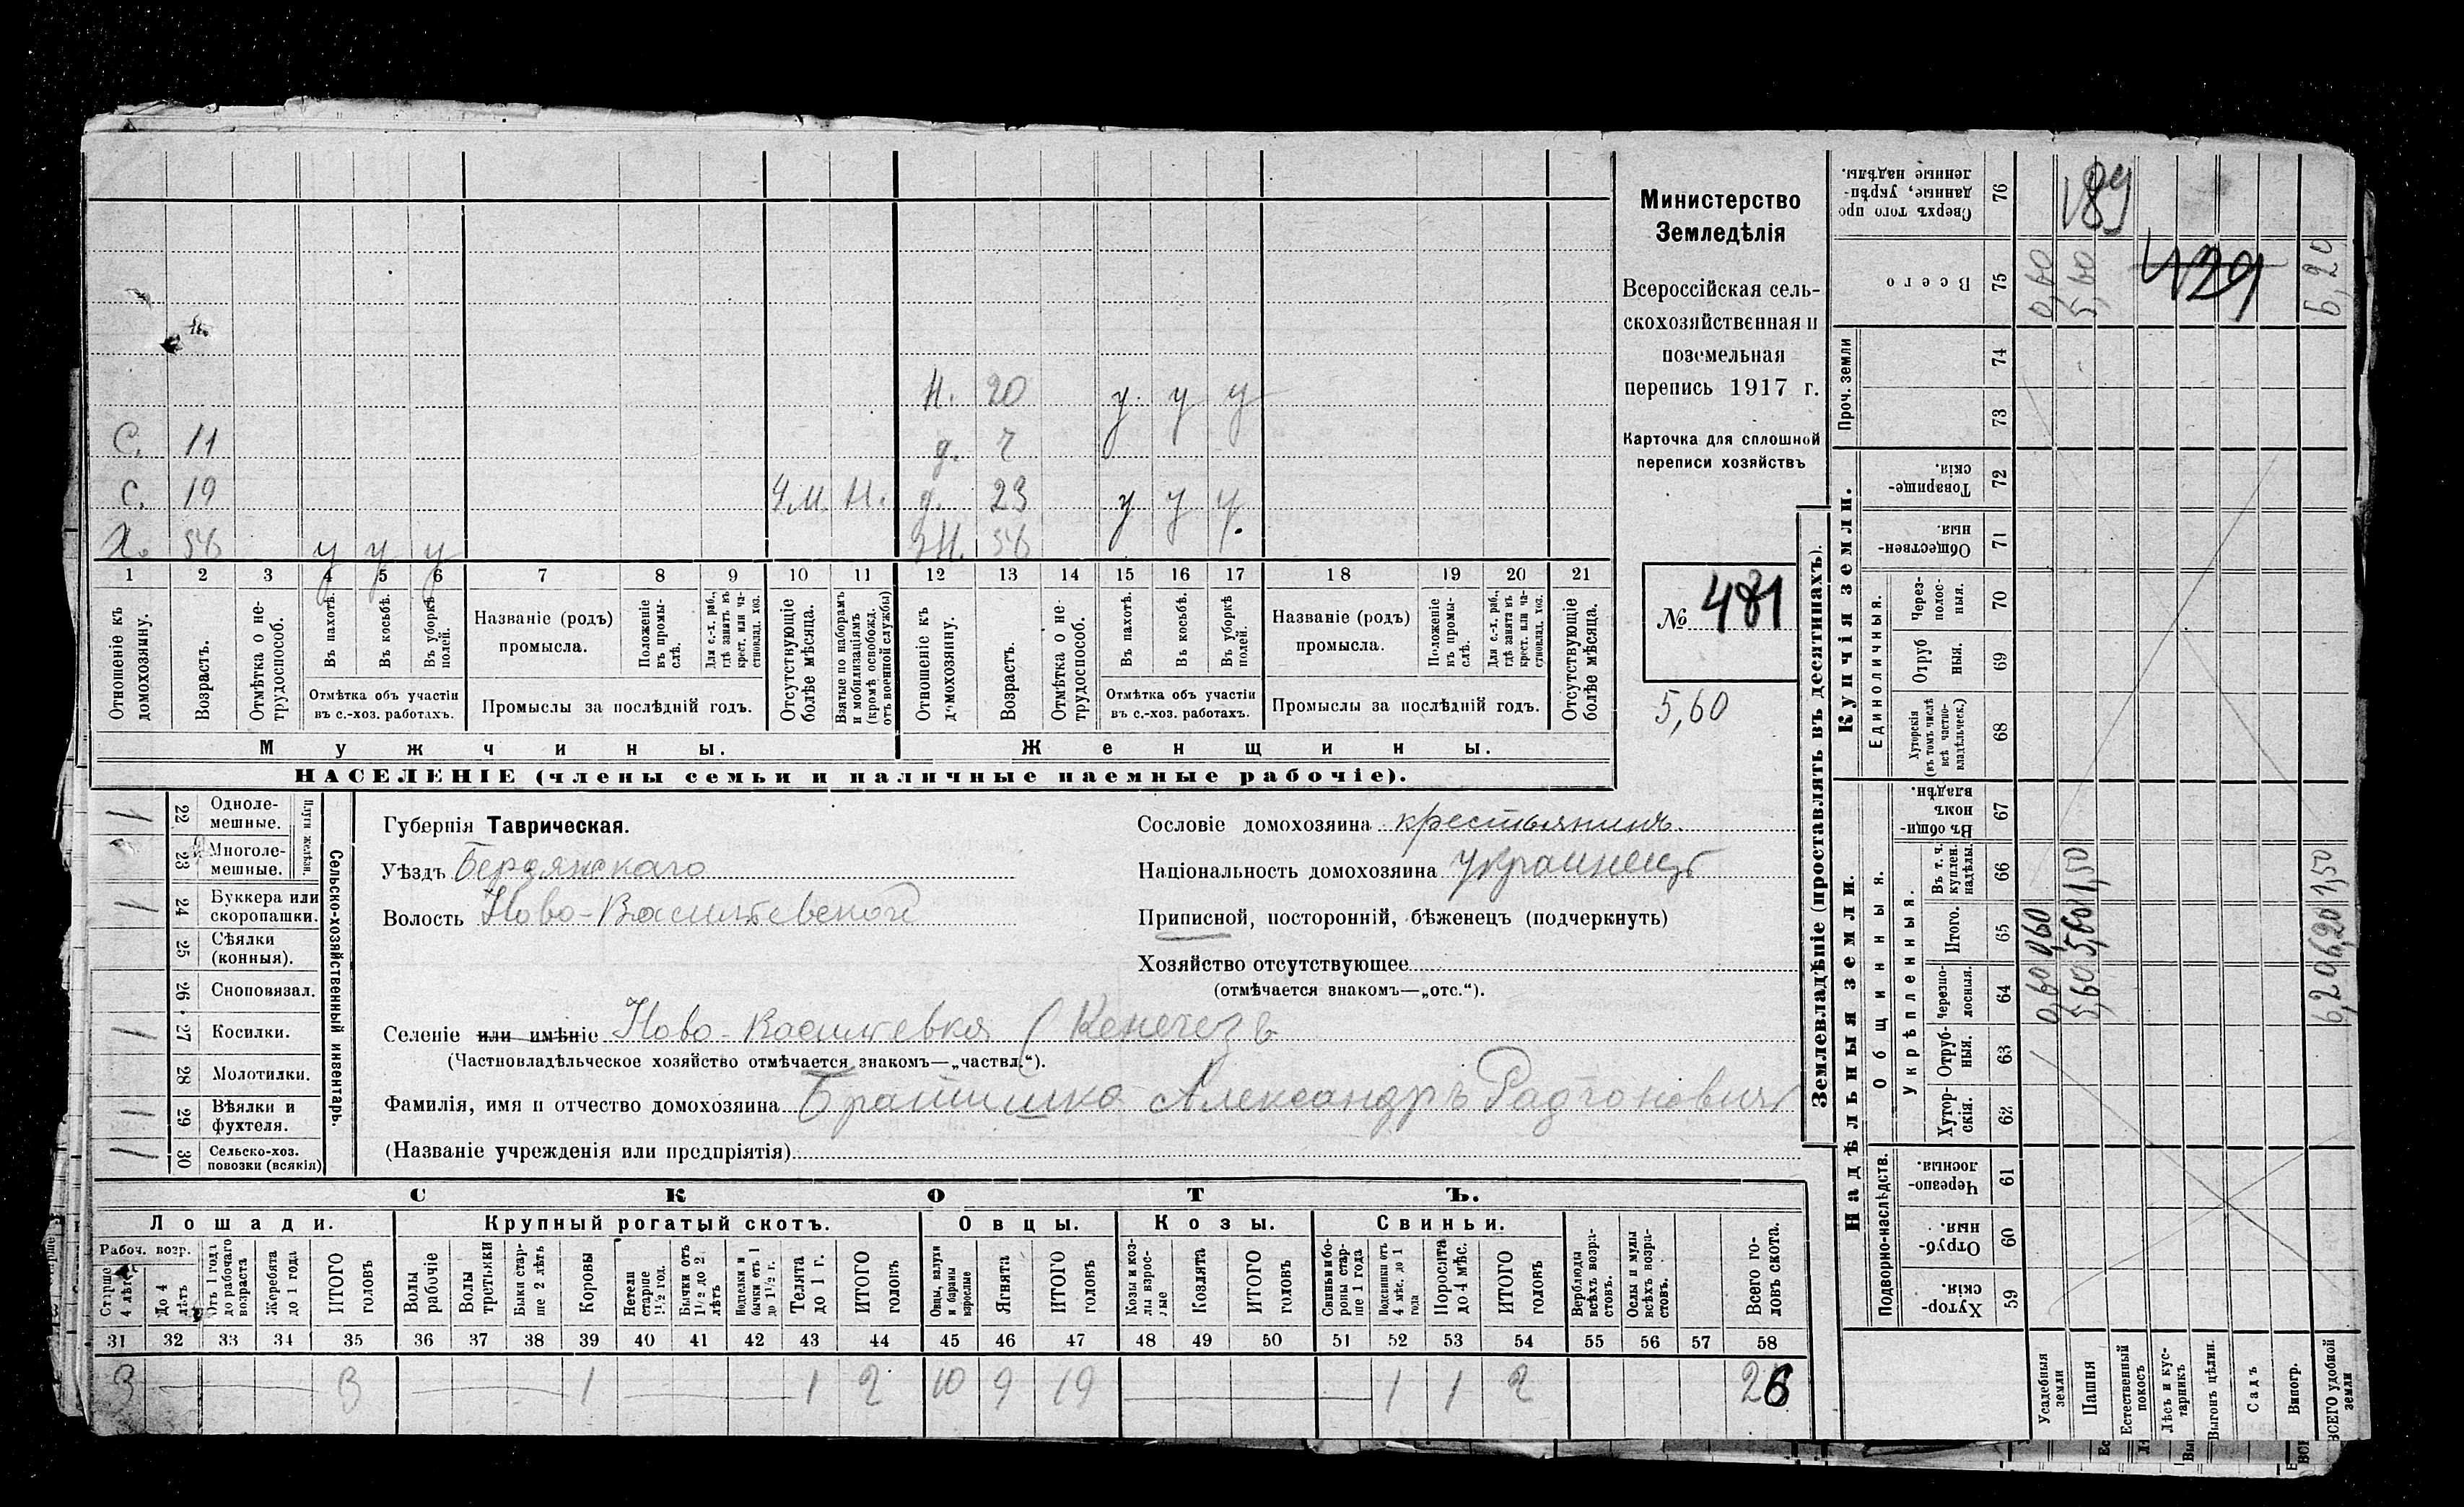 Министерство
Земледѣлія
Всероссійская сель-
скохозяйственная и
поземельная
перепись 1917 г.
Карточка для сплошной
переписи хозяйствъ
№ 481
5,60
Н. 20 у. у у
С. 11 д.
С. 19 4 м. Н. д. 23 у у у.
Х. 56 у у у Ж. 56
1 2 3 4 5 6 7 8 9 10 11 12 13 14 15 16 17 18 19 20 21
Отношеніе къ домохозяину.
Возрастъ.
Отмѣтка о не-трудоспособ.
Въ пахотѣ.
Въ косьбѣ.
Въ уборкѣ полей.
Отмѣтка объ участіи
въ с.-хоз. работахъ.
Названіе (родъ)
промысла.
Положеніе въ промы-слѣ.
Для с.-х. раб., гдѣ занятъ въ крест. или ча-ствовлад. хоз.
Промыслы за послѣдній годъ.
Отсутствующіе болѣе мѣсяца.
Взятые по наборамъ и мобилизаціямъ (кромѣ освобожд. отъ военной службы)
Отношеніе къ домохозяину.
Возрастъ.
Отмѣтка о не-трудоспособ.
Въ пахотѣ.
Въ косьбѣ.
Въ уборкѣ полей.
Отмѣтка объ участіи
въ с.-хоз. работахъ.
Названіе (родъ)
промысла.
Положеніе въ промы-слѣ.
Для с.-х. раб., гдѣ занята въ крест. или ча-ствовлад. хоз.
Промыслы за послѣдній годъ.
Отсутствующіе болѣе мѣсяца.
Мужчины. Женщины.
НАСЕЛЕНІЕ (члены семьи и наличные наемные рабочіе).
Сельско-хозяйственный инвентарь.
Плуги желѣзн.
1 22 Одноле-мешные.
23 Многоле-мешные.
1 24 Буккера или скоропашки.
25 Сѣялки (конныя).
26 Сноповязал.
1 27 Косилки.
28 Молотилки.
1 29 Вѣялки и фухтеля.
11 30 Сельско-хоз. повозки (всякія)
Губернія Таврическая.
Уѣздъ Бердянскаго
Волость Ново-Васильевской
Сословіе домохозяина крестьянинъ.
Національность домохозяина украинецъ
Приписной, посторонній, бѣженецъ (подчеркнуть)
Хозяйство отсутствующее
(отмѣчается знакомъ—„отс.“).
Селеніе или имѣніе Ново-Васильевка (Кенегезъ
(Частновладѣльческое хозяйство отмѣчается знакомъ—„частвл.“).
Фамилія, имя и отчество домохозяина Братишко Александръ Радіоновичъ
(Названіе учрежденія или предпріятія)
СКОТЪ.
Лошади. Крупный рогатый скотъ. Овцы. Козы. Свиньи.
Рабоч. возр.
Старше 4 лѣтъ
До 4 лѣтъ
Отъ 1 года до рабочаго возраста
Жеребята до 1 года
ИТОГО головъ
Волы рабочіе
Волы третьяки
Быки стар-ше 2 лѣтъ
Коровы
Нетели старше 1½ год.
Бычки отъ 1½ до 2 лѣтъ
Подтелки и бычки отъ 1 до 1½ г.
Телята до 1 г.
ИТОГО головъ
Овцы, валухи и бараны взрослые
Ягнята
ИТОГО головъ
Козы и коз-лы взрос-лые
Козлята
ИТОГО головъ
Свиньи и бо-ровы стар-ше 1 года
Подсвинки отъ 4 мѣс. до 1 года
Поросята до 4 мѣс.
ИТОГО головъ
Верблюды всѣхъ возра-стовъ.
Ослы и мулы всѣхъ возра-стовъ.
Всего го-ловъ скота.
31 32 33 34 35 36 37 38 39 40 41 42 43 44 45 46 47 48 49 50 51 52 53 54 55 56 57 58
3 3 1 1 2 10 9 19 1 1 2 26
Землевладѣніе (проставлять въ десятинахъ).
Купчія земли.
Надѣльныя земли.
76 Сверхъ того про-данные, укрѣп-ленные надѣлы.
189
75 Всего 0,60 5,60 429 6,20
Проч. земли
74
73
72 Товарище-скія.
71 Обществен-ныя.
Единоличныя.
70 Через-полос-ныя.
69 Отруб-ныя.
68 Хуторскія (въ томъ числѣ всѣ частно-владѣльческ.)
Общинныя.
67 Въ общи-номъ владѣн.
Укрѣпленныя.
66 Въ т. ч. куплен. надѣлы. 1,50 1,50
65 Итого. 0,60 5,60 6,20
64 Черезпо-лосныя. 0,60 5,60 6,20
63 Отруб-ныя.
62 Хутор-скія.
Подворно-наслѣдств.
61 Черезпо-лосныя.
60 Отруб-ныя.
59 Хутор-скія.
Усадебныя земли
Пашня
Естественный покосъ
Лѣсъ и кус-тарникъ
Выгонъ цѣлин.
Садъ
Виногр.
ВСЕГО удобной земли